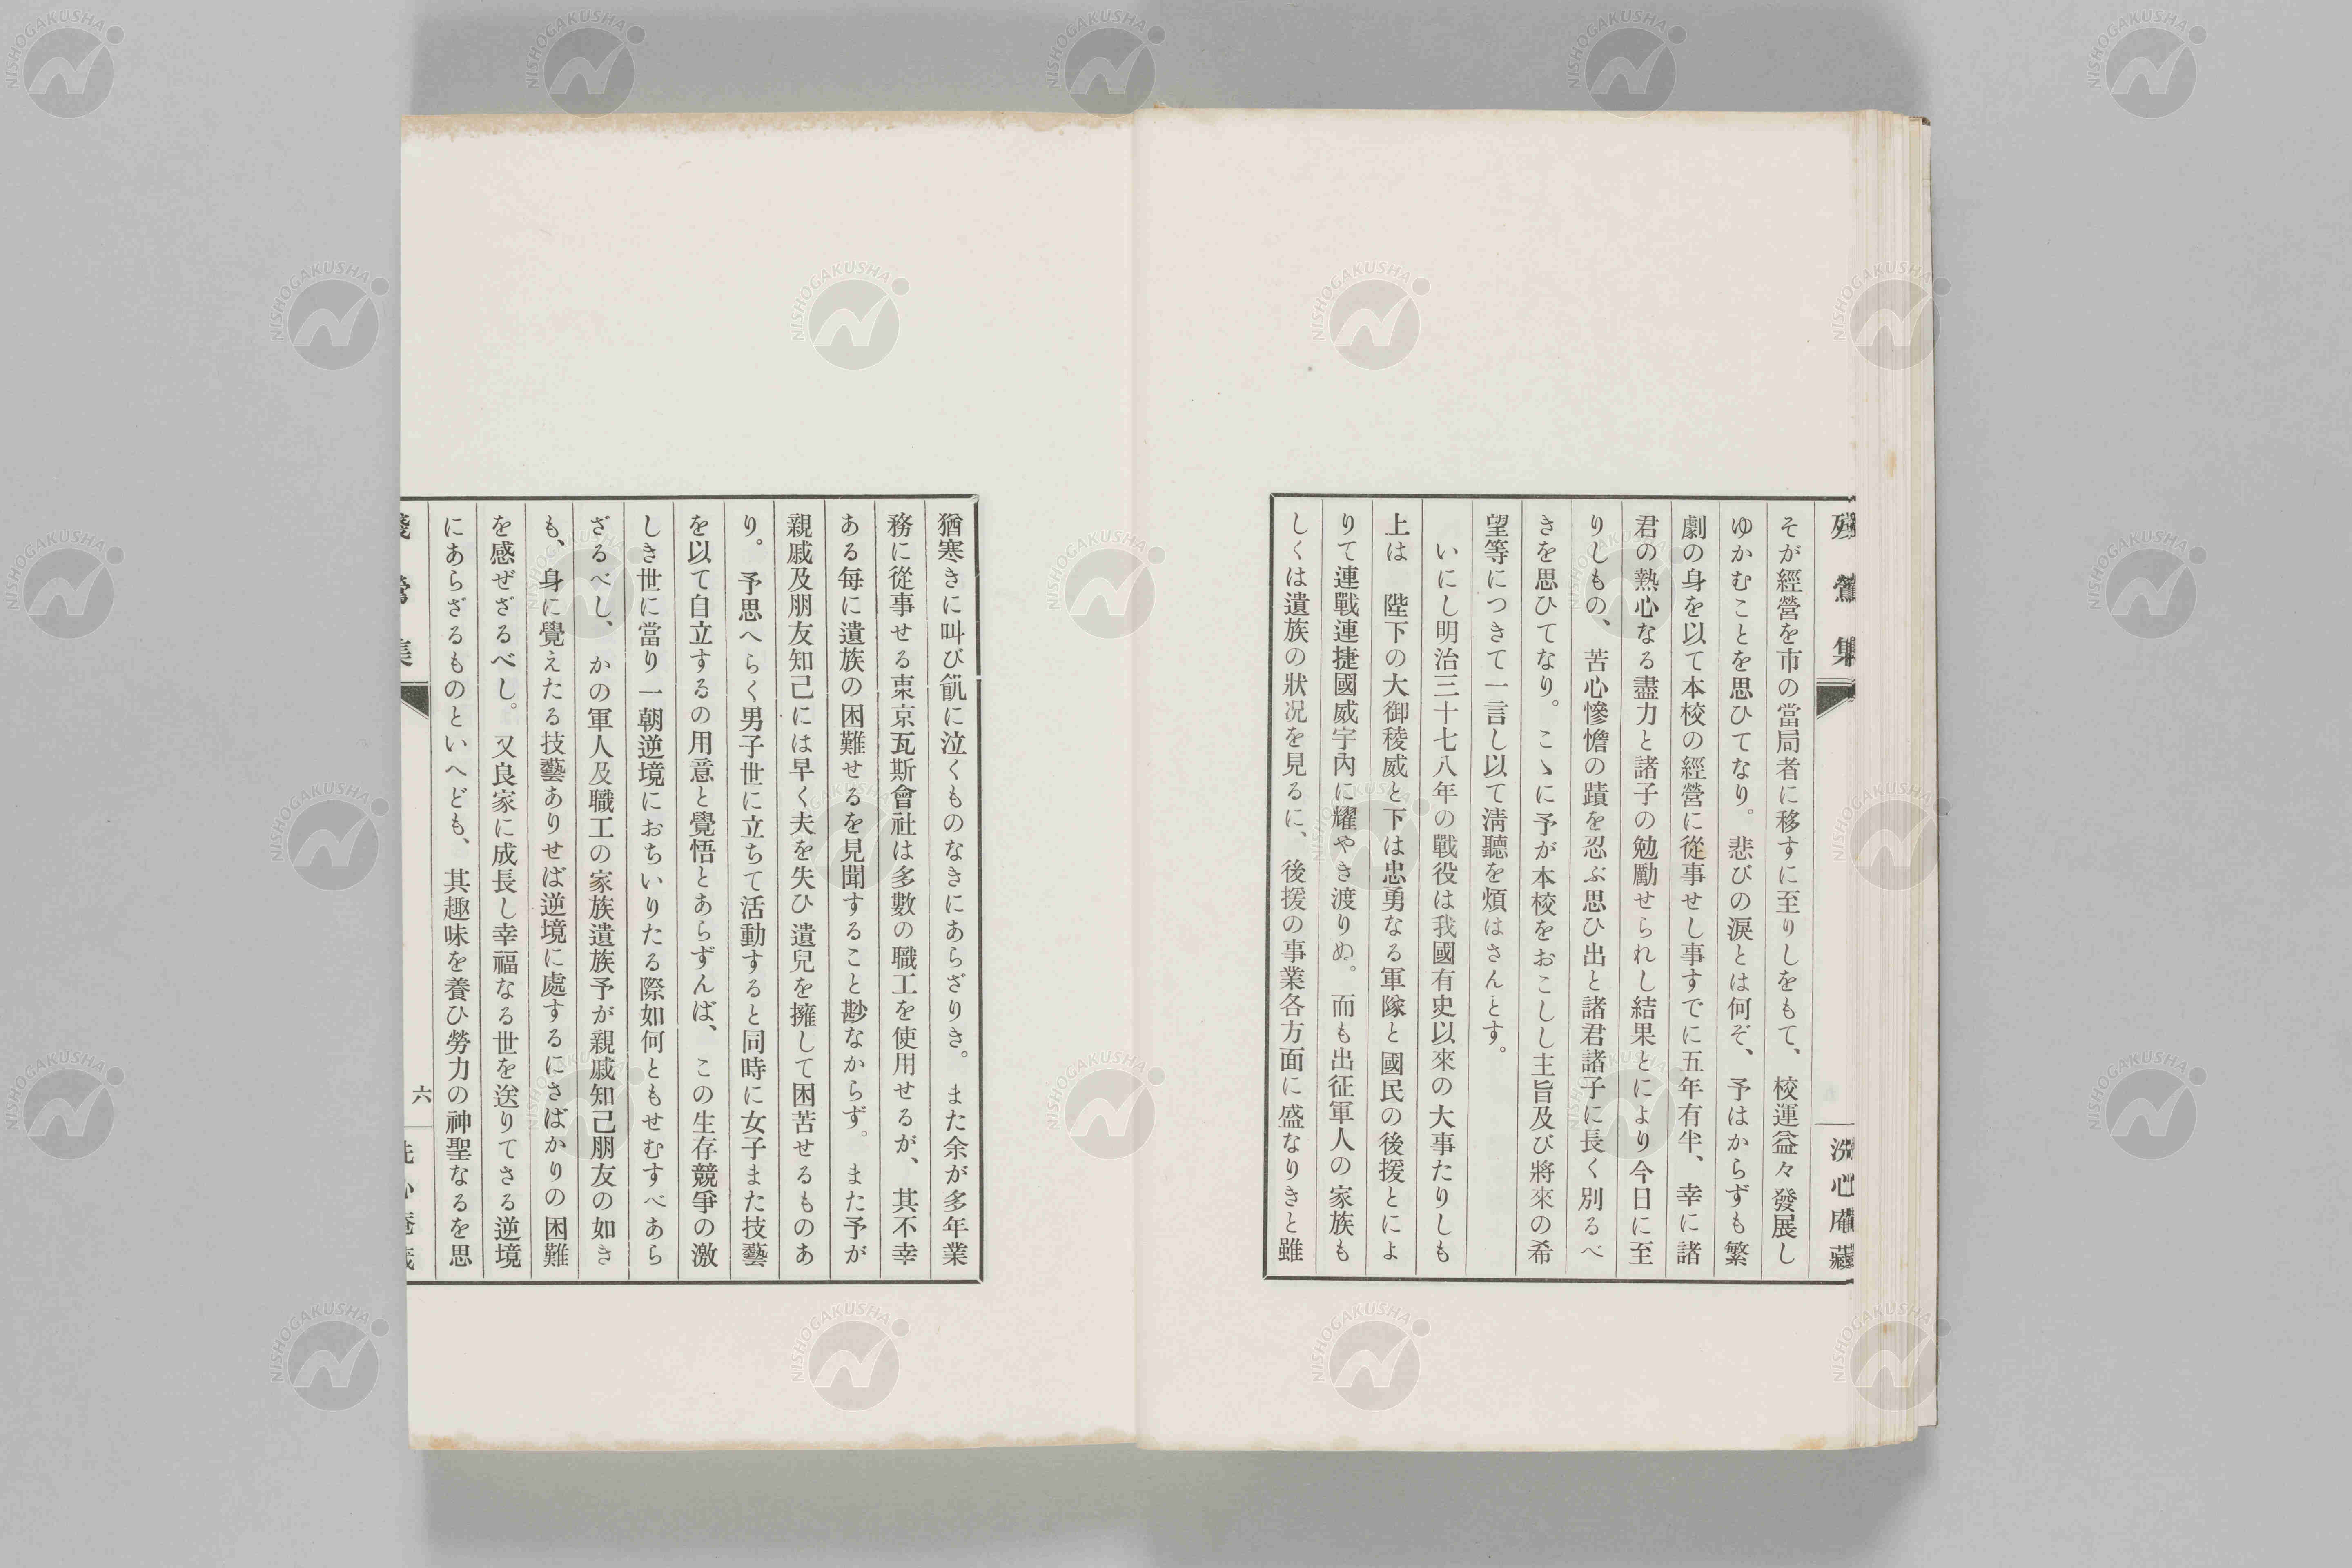 殘鶯集
洗心庵藏
そが經營を市の當局者に移すに至りしをもて、校運益々發展し
ゆかむことを思ひてなり。悲びの淚とは何ぞ、予はからずも繁
劇の身を以て本校の經營に從事せし事すでに五年有半、幸に諸
君の熱心なる盡力と諸子の勉勵せられし結果とにより今日に至
りしもの、苦心慘憺の蹟を忍ぶ思ひ出と諸君諸子に長く別るべ
きを思ひてなり。こゝに予が本校をおこしし主旨及び將來の希
望等につきて一言し以て淸聽を煩はさんとす。
いにし明治三十七八年の戰役は我國有史以來の大事たりしも
上は 陛下の大御稜威と下は忠勇なる軍隊と國民の後援とによ
りて連戰連捷國威宇內に耀やき渡りぬ。而も出征軍人の家族も
しくは遺族の狀况を見るに、後援の事業各方面に盛なりきと雖
猶寒きに叫び飢に泣くものなきにあらざりき。また余が多年業
務に從事せる東京瓦斯會社は多數の職工を使用せるが、其不幸
ある每に遺族の困難せるを見聞すること尠なからず。また予が
親戚及朋友知己には早く夫を失ひ遺兒を擁して困苦せるものあ
り。予思へらく男子世に立ちて活動すると同時に女子また技藝
を以て自立するの用意と覺悟とあらずんば、この生存競爭の激
しき世に當り一朝逆境におちいりたる際如何ともせむすべあら
ざるべし、かの軍人及職工の家族遺族予が親戚知己朋友の如き
も、身に覺えたる技藝ありせば逆境に處するにさばかりの困難
を感ぜざるべし。又良家に成長し幸福なる世を送りてさる逆境
にあらざるものといへども、其趣味を養ひ勞力の神聖なるを思
六
NISHOGAKUSHA